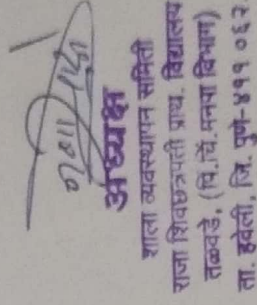 अध्यक्ष
शाला व्यवस्थापन समिती
राजा शिवछत्रपती प्राथ. विद्यालय
तळवडे, (पिं.चिं.मनपा विभाग)
ता. हवेली, जि. पुणे-४११ ०६२.